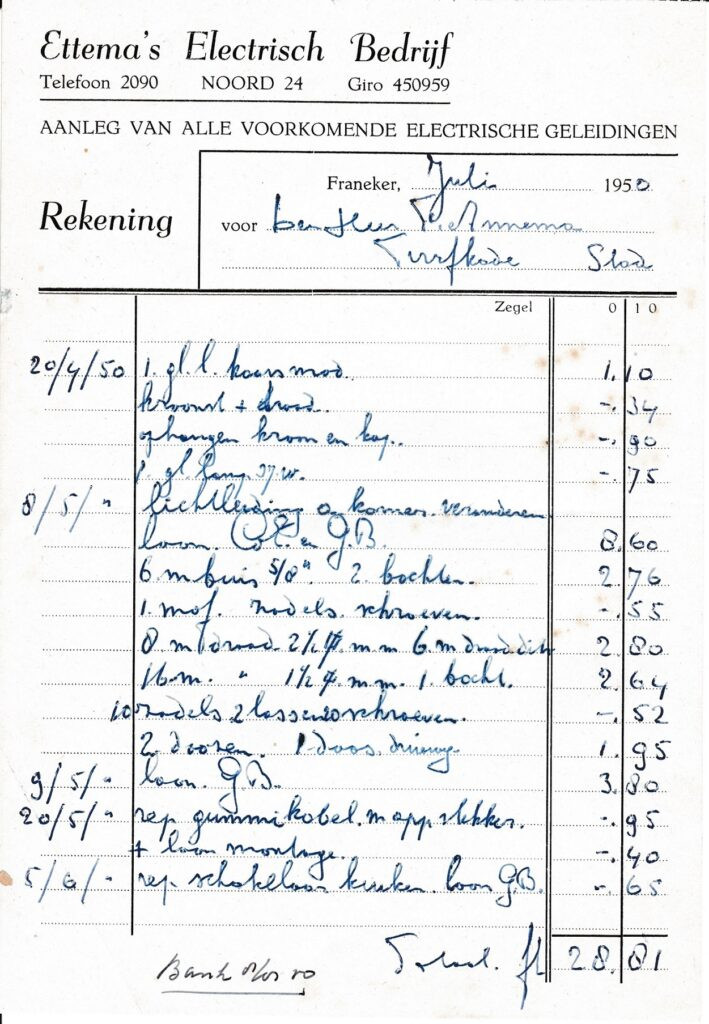 Ettema's Electrisch Bedrijf
Telefoon 2090 NOORD 24 Giro 450959
AANLEG VAN ALLE VOORKOMENDE ELECTRISCHE GELEIDINGEN
Franeker, Juli 1950
Rekening voor den Heer P. Annema
Turfkade Stad
Zegel 0 10
20/4/50 1. gl. l. kaarsmod. 1.10
kroonst + draad. -.34
ophangen kroon en kap. -.90
1. gl. lamp. W. -.75
8/5/" lichtleiding kamer veranderen
loon. en G.B. 8.60
6 m buis 5/8" 2 bochten. 2.76
1. mof. zadels. schroeven. -.55
8 m draad 2½ m.m 6 m draad dito 2.80
16 m. " 1½ m.m. 1 bocht. 2.64
10 zadels 2 lassen 20 schroeven. -.52
2 doozen. 1 doos. 1.95
9/5/" loon. G.B. 3.80
20/5/" rep gummikabel. m app stekker. -.95
+ loon montage. -.40
5/6/" rep schakelaar keuken. loon G.B. -.65
Totaal. fl 28.81
Bank